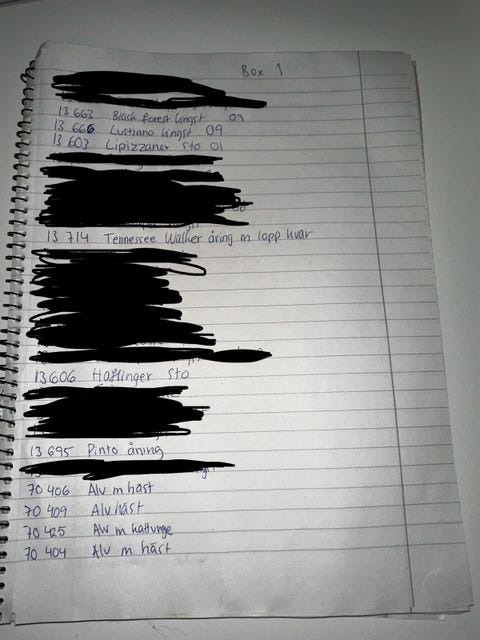 Box 1
13 663 Black forest hingst 09
13 666 Lusitano hingst 09
13 603 Lipizzaner Sto 01
13 714 Tennessee Walker åring m lapp kvar
13 606 Haflinger Sto
13 695 Pinto åring
70 406 Alv m häst
70 409 Alv häst
70 425 Alv m kattunge
70 404 Alv m häst